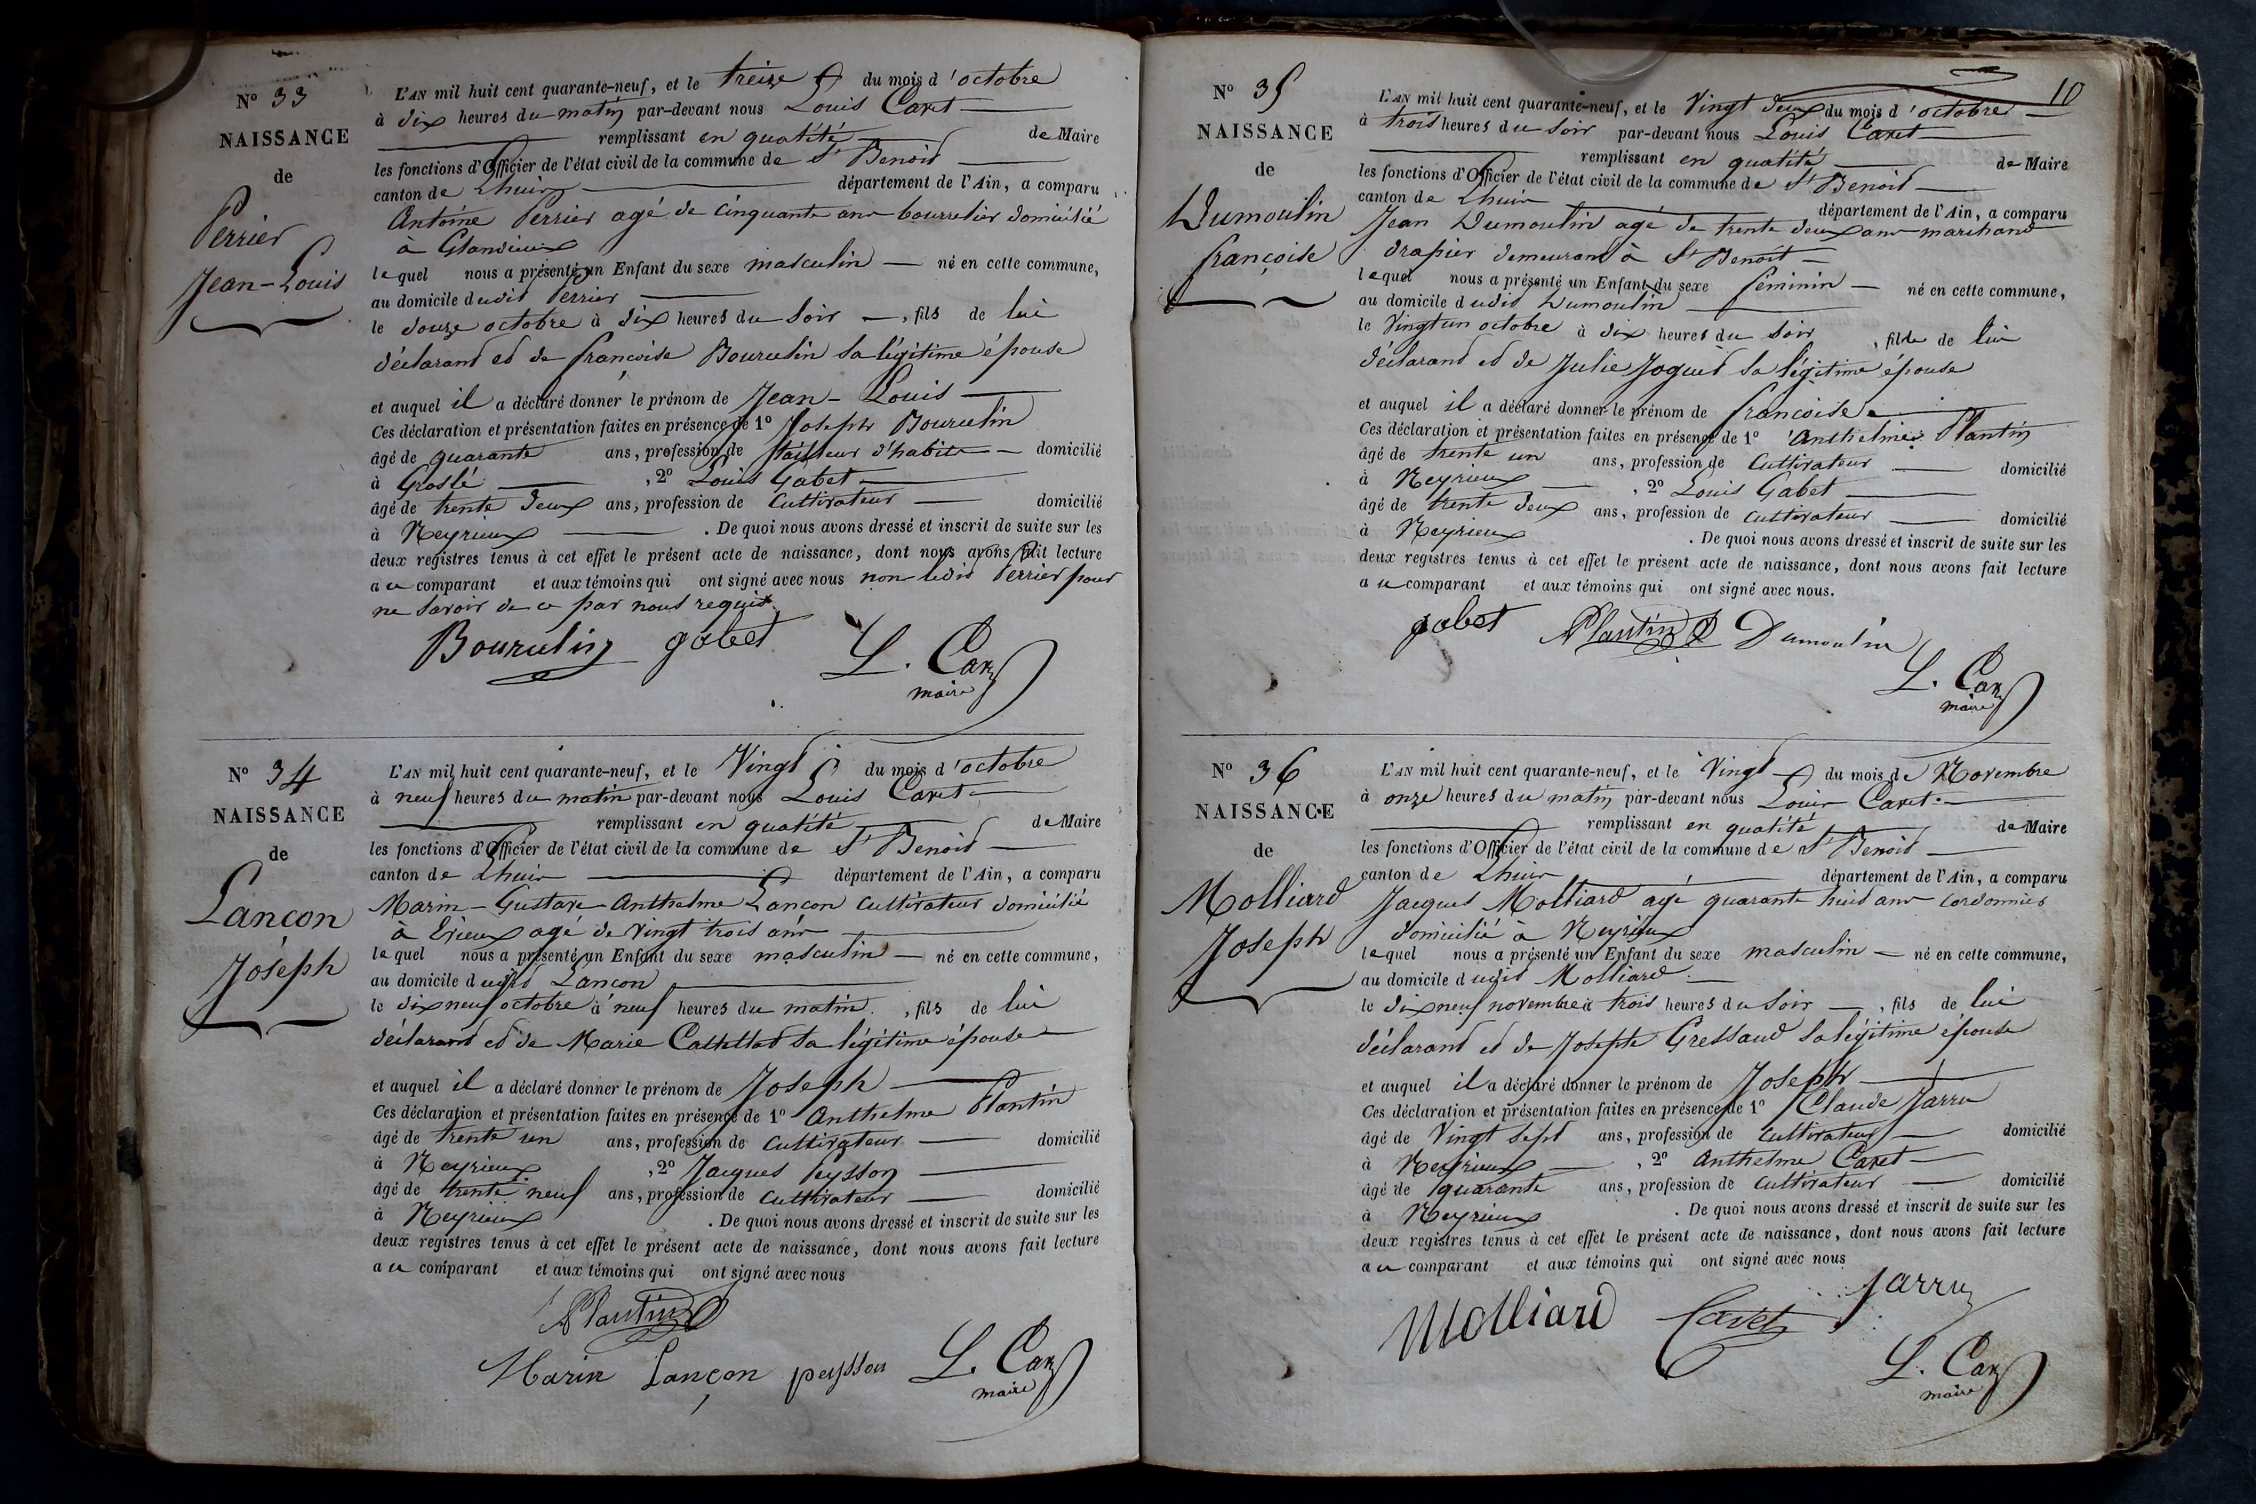 N° 33
NAISSANCE
de
Perrier
Jean-Louis
L'AN mil huit cent quarante-neuf, et le treize du mois d'octobre
à dix heures du matin par-devant nous Louis Cavet
remplissant en qualité de Maire
les fonctions d'Officier de l'état civil de la commune de St Benoid
canton de Lhuis département de l'Ain, a comparu
Antoine Perrier agé de cinquante ans bourrelier domicilié
à Glandieux
lequel nous a présenté un Enfant du sexe masculin né en cette commune,
au domicile dudit Perrier
le douze octobre à dix heures du soir, fils de lui
déclarand et de françoise Bourulin sa légitime épouse
et auquel il a déclaré donner le prénom de Jean-Louis
Ces déclaration et présentation faites en présence de 1° Joseph Bourulin
âgé de quarante ans, profession de tailleur d'habits domicilié
à Groslé, 2° Louis Gabet
âgé de trente deux ans, profession de cultivateur domicilié
à Neyrieux. De quoi nous avons dressé et inscrit de suite sur les
deux registres tenus à cet effet le présent acte de naissance, dont nous avons fait lecture
au comparant et aux témoins qui ont signé avec nous non ledit Perrier pour
ne savoir de ce par nous requis
Bourulin gabet L. Cavet
maire
N° 34
NAISSANCE
de
Lançon
Joseph
L'AN mil huit cent quarante-neuf, et le Vingt du mois d'octobre
à neuf heures du matin par-devant nous Louis Cavet
remplissant en qualité de Maire
les fonctions d'Officier de l'état civil de la commune de St Benoid
canton de Lhuis département de l'Ain, a comparu
Marin-Gustave Anthelme Lançon cultivateur domicilié
à Evieux agé de vingt trois ans
lequel nous a présenté un Enfant du sexe masculin né en cette commune,
au domicile dudit Lançon
le dix neuf octobre à neuf heures du matin, fils de lui
déclarand et de Marie sa légitime épouse
et auquel il a déclaré donner le prénom de Joseph
Ces déclaration et présentation faites en présence de 1° Anthelme Plantin
âgé de trente un ans, profession de cultivateur domicilié
à Neyrieux, 2° Jacques Peysson
âgé de trente neuf ans, profession de cultivateur domicilié
à Neyrieux. De quoi nous avons dressé et inscrit de suite sur les
deux registres tenus à cet effet le présent acte de naissance, dont nous avons fait lecture
au comparant et aux témoins qui ont signé avec nous
Plantin
Marin Lançon peysson L. Cavet
maire
10
N° 35
NAISSANCE
de
Dumoulin
françoise
L'AN mil huit cent quarante-neuf, et le Vingt deux du mois d'octobre
à trois heures du soir par-devant nous Louis Cavet
remplissant en qualité de Maire
les fonctions d'Officier de l'état civil de la commune de St Benoid
canton de Lhuis département de l'Ain, a comparu
Jean Dumoulin agé de trente deux ans marchand
drapier demeurand à St Benoit
lequel nous a présenté un Enfant du sexe féminin né en cette commune,
au domicile dudit Dumoulin
le Vingt un octobre à dix heures du soir, fille de lui
déclarand et de Julie Joguet sa légitime épouse
et auquel il a déclaré donner le prénom de françoise
Ces déclaration et présentation faites en présence de 1° Anthelme Plantin
âgé de trente un ans, profession de cultivateur domicilié
à Neyrieux, 2° Louis Gabet
âgé de trente deux ans, profession de cultivateur domicilié
à Neyrieux. De quoi nous avons dressé et inscrit de suite sur les
deux registres tenus à cet effet le présent acte de naissance, dont nous avons fait lecture
au comparant et aux témoins qui ont signé avec nous.
gabet Plantin Dumoulin
L. Cavet
maire
N° 36
NAISSANCE
de
Molliard
Joseph
L'AN mil huit cent quarante-neuf, et le Vingt du mois de Novembre
à onze heures du matin par-devant nous Louis Cavet
remplissant en qualité de Maire
les fonctions d'Officier de l'état civil de la commune de St Benoid
canton de Lhuis département de l'Ain, a comparu
Jacques Molliard agé quarante huid ans cordonnier
domicilié à Neyrieux
lequel nous a présenté un Enfant du sexe masculin né en cette commune,
au domicile dudit Molliard
le dix neuf novembre à trois heures du soir, fils de lui
déclarand et de Josephte Gressaud sa légitime épouse
et auquel il a déclaré donner le prénom de Joseph
Ces déclaration et présentation faites en présence de 1° Claude Jarru
âgé de Vingt sept ans, profession de cultivateur domicilié
à Neyrieux, 2° Anthelme Cavet
âgé de quarante ans, profession de cultivateur domicilié
à Neyrieux. De quoi nous avons dressé et inscrit de suite sur les
deux registres tenus à cet effet le présent acte de naissance, dont nous avons fait lecture
au comparant et aux témoins qui ont signé avec nous
Molliard Cavet Jarru
L. Cavet
maire